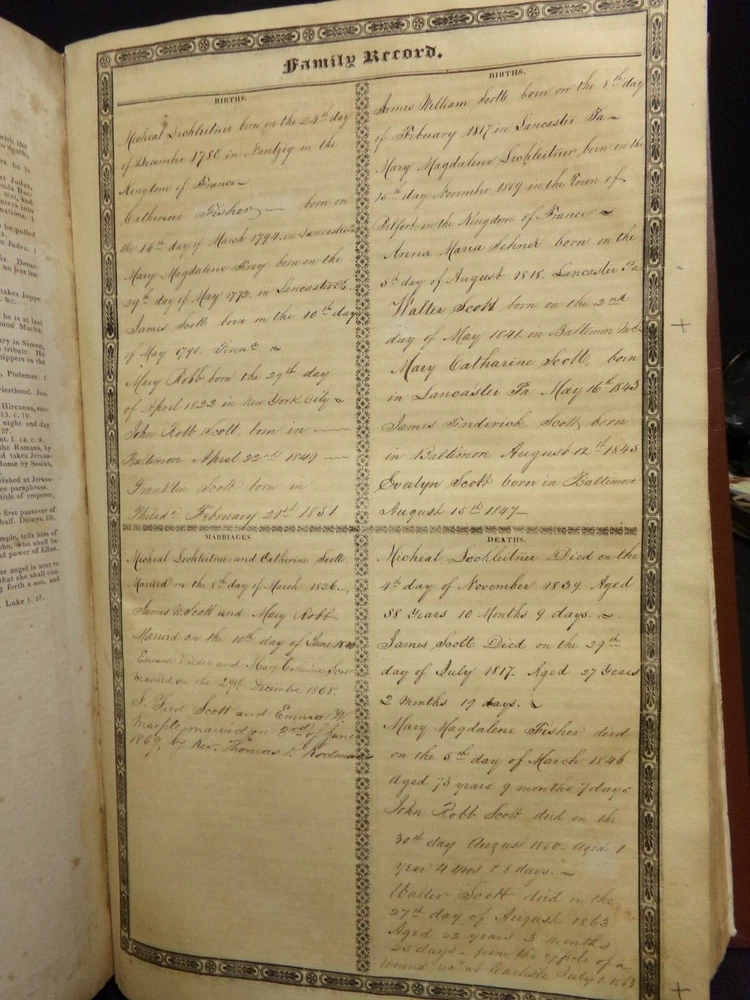 Family Record.
BIRTHS.
Micheal Lechleitner born on the 24th day
of December 1780, in Nantzig in the
Kingdom of France
Catherine Fisher born on
the 16th day of March 1794 in Lancaster Pa
Mary Magdalene born on the
29th day of May 1772. in Lancaster Pa
James Scott born on the 10th day
of May 1790. Penna
Mary Robb born the 29th day
of April 1822 in New York City
John Robb Scott, born in
Baltimore April 22nd 1849
Franklin Scott born in
Philada February 21st 1851
BIRTHS.
James William Scott born on the 8th day
of February 1817. in Lancaster Pa
Mary Magdalene Lechleitner, born on the
10th day November 1809 in the Town of
Belfort in the Kingdom of France
Anna Maria Sehner born on the
5th day of August 1818. Lancaster Pa
Walter Scott born on the 2nd
day of May 1841. in Baltimore
Mary Catharine Scott, born
in Lancaster Pa May 16th 1843
James Frederick Scott born
in Baltimore August 12th 1845
Evalyn Scott born in Baltimore
August 15th 1847
MARRIAGES.
Micheal Lechleitner and Catherine Scott
Married on the 8th day of March 1826
James W. Scott and Mary Robb
Married on the 10th day of June 1840
Edward Wilder and Mary Catharine Scott
married on the 29th December 1868.
J. Fred Scott and Emma W.
married on 2nd of June
1869, by Rev. Thomas
DEATHS.
Micheal Lechleitner Died on the
4th day of November 1839. Aged
58 Years 10 Months 9 days.
James Scott Died on the 29th
day of July 1817. Aged 27 Years
2 months 19 days.
Mary Magdalene Fisher died
on the 5th day of March 1846
Aged 73 years 9 months 7 days
John Robb Scott died on the
30th day August 1850. Aged 1
Year 4 mos & 8 days.
Walter Scott died on the
27th day of August 1863
Aged 22 years 3 months
25 days - from the effects of a
wound rec'd at Carlisle July 1. 1863